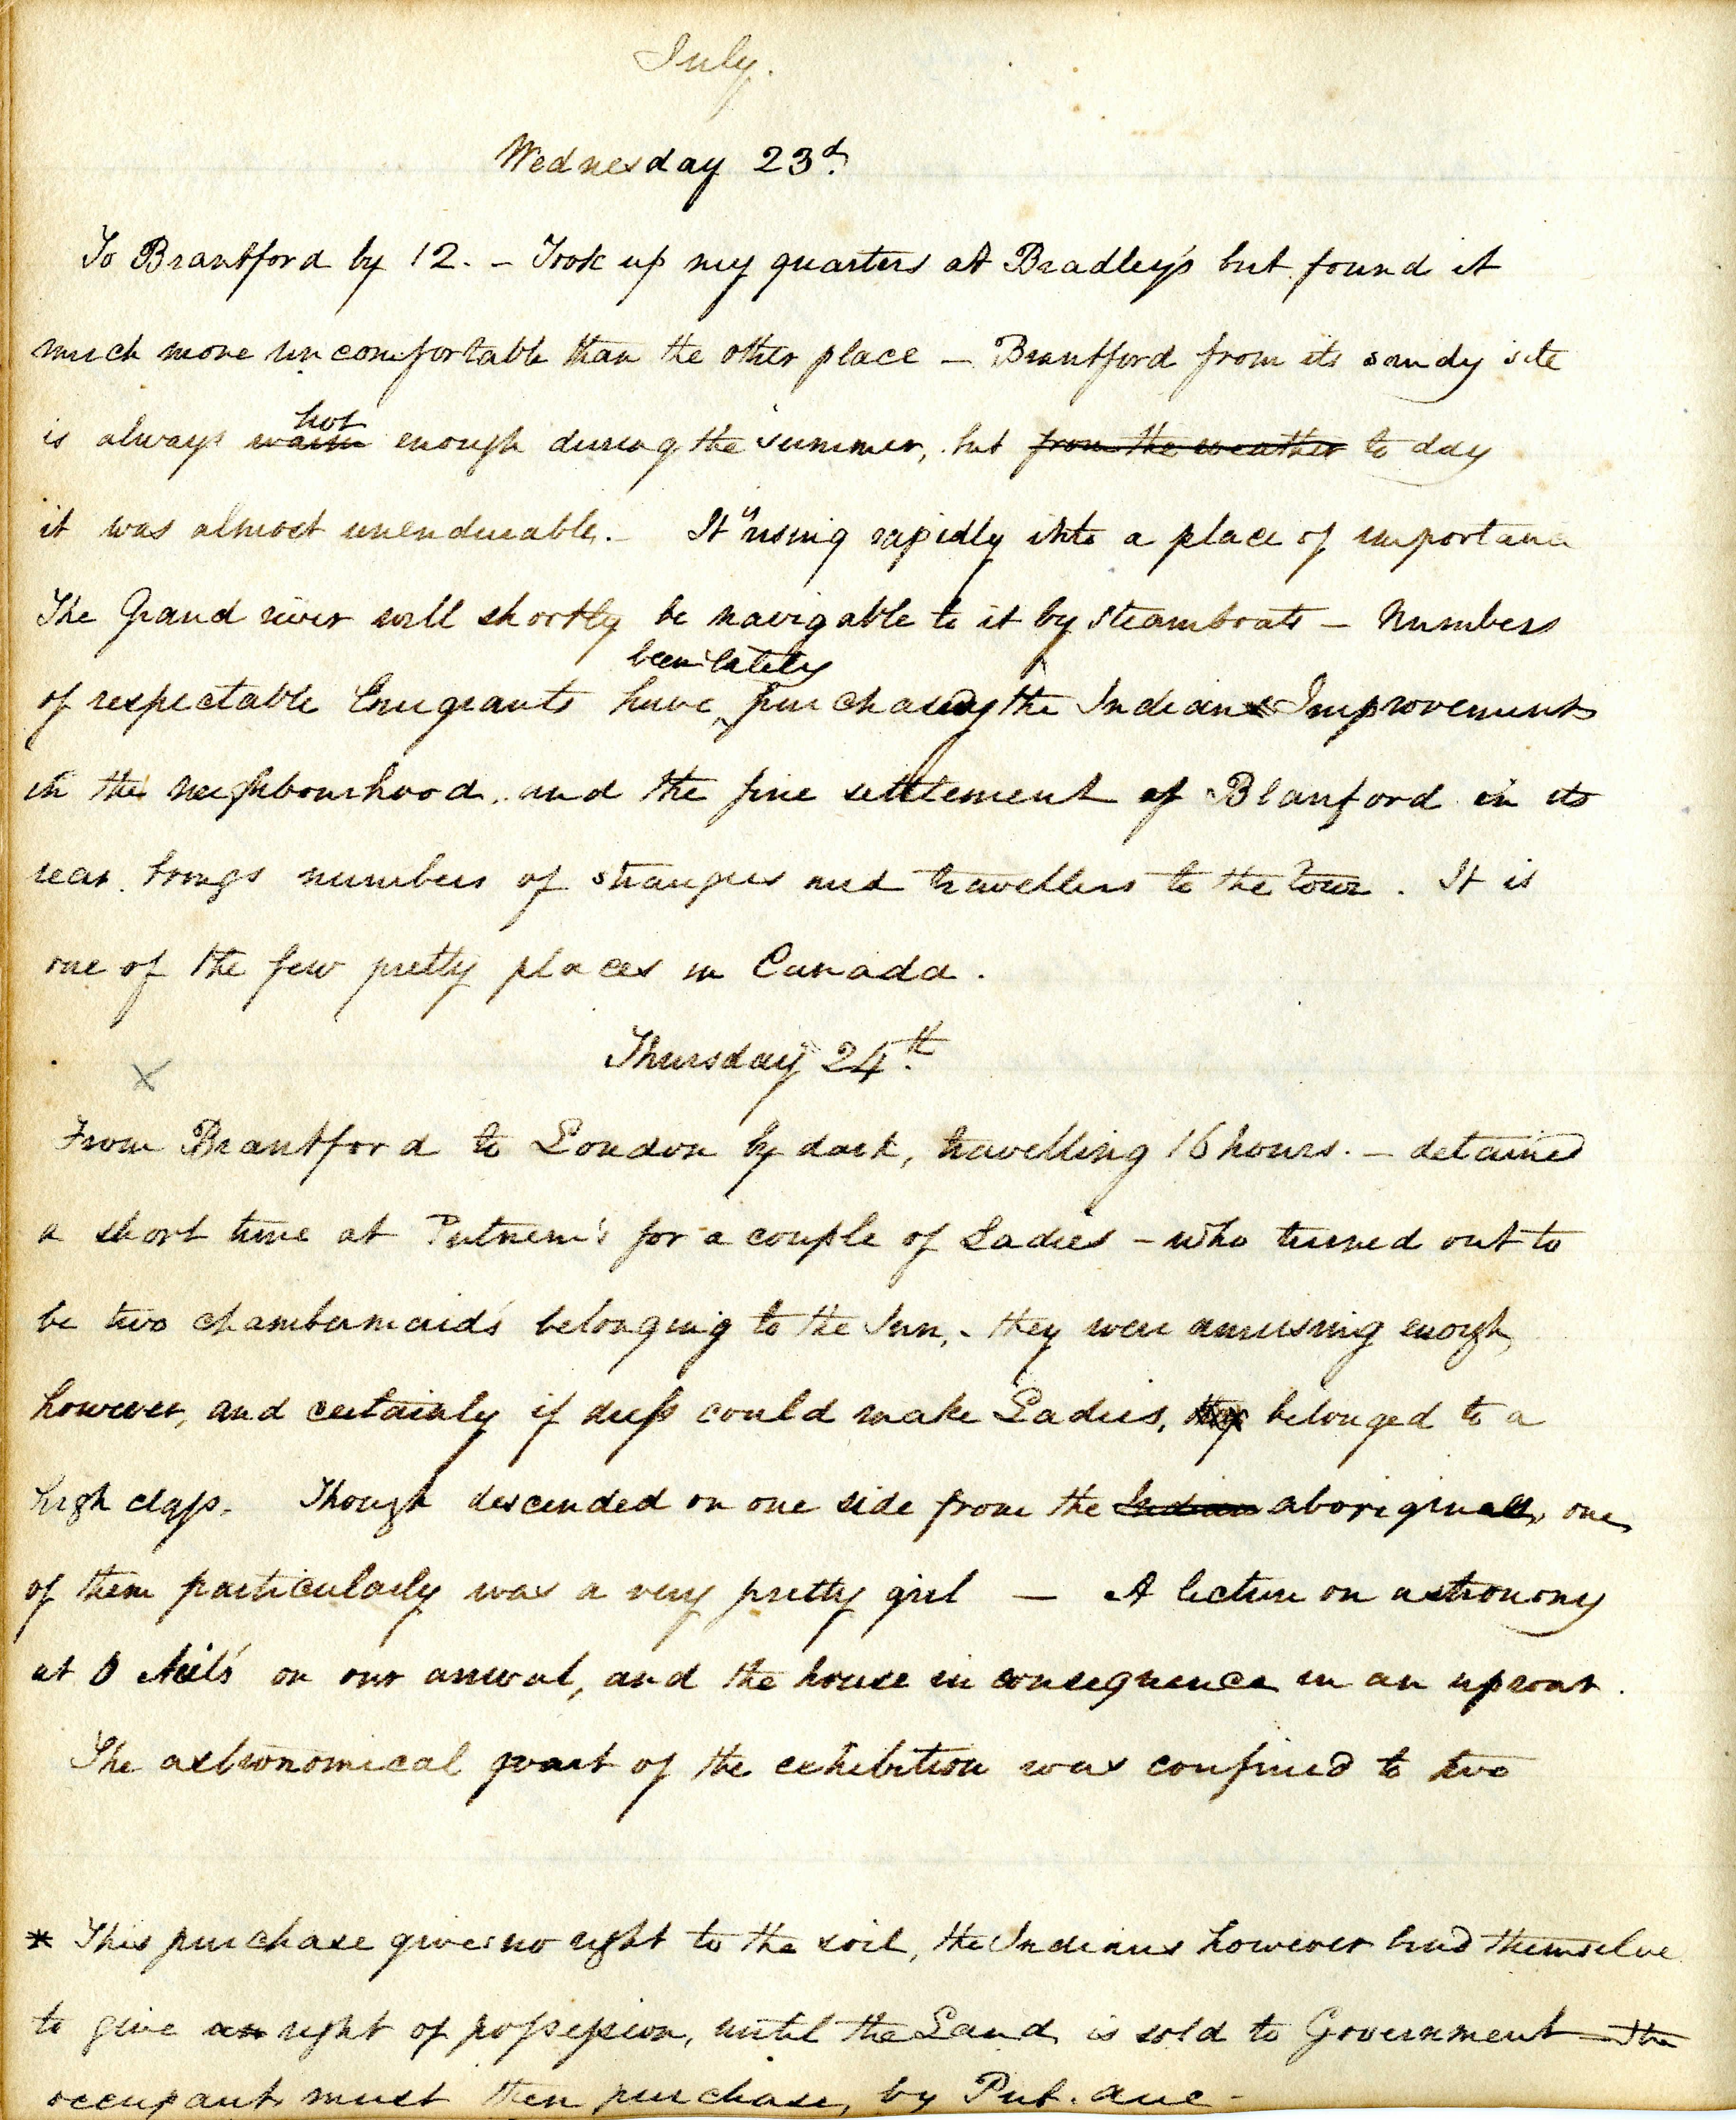 July.
Wednesday 23d.
To Brantford by 12. – Took up my quarters at Bradley's but found it
much more uncomfortable than the other place – Brantford from its sandy site
is always warm hot enough during the summer, but from the weather to day
it was almost unendurable. – It is rising rapidly into a place of importance
The Grand river will shortly be navigable to it by Steamboats – Numbers
been lately
of respectable Emigrants have purchasing the Indian Improvements
in the neighbourhood. and the fine settlement of Blanford in its
rear. brings numbers of strangers and travellers to the Town. It is
one of the few pretty places in Canada.
Thursday 24th.
x
From Brantford to London by dark, travelling 16 hours. – detained
a short time at Putnem's for a couple of Ladies – who turned out to
be two chambermaids belonging to the Inn, – they were amusing enough,
however, and certainly if dress could make Ladies, they belonged to a
high class. Though descended on one side from the Indian aboriginals, one
of them particularly was a very pretty girl — A lecture on astronomy
at O Neil's on our arrival, and the house in consequence in an uproar.
The astronomical part of the exhibition was confined to two
* This purchase gives no right to the soil, the Indians however bind themselve
to give an right of possession, until the Land is sold to Government – The
occupant must then purchase, by Pub. auc-